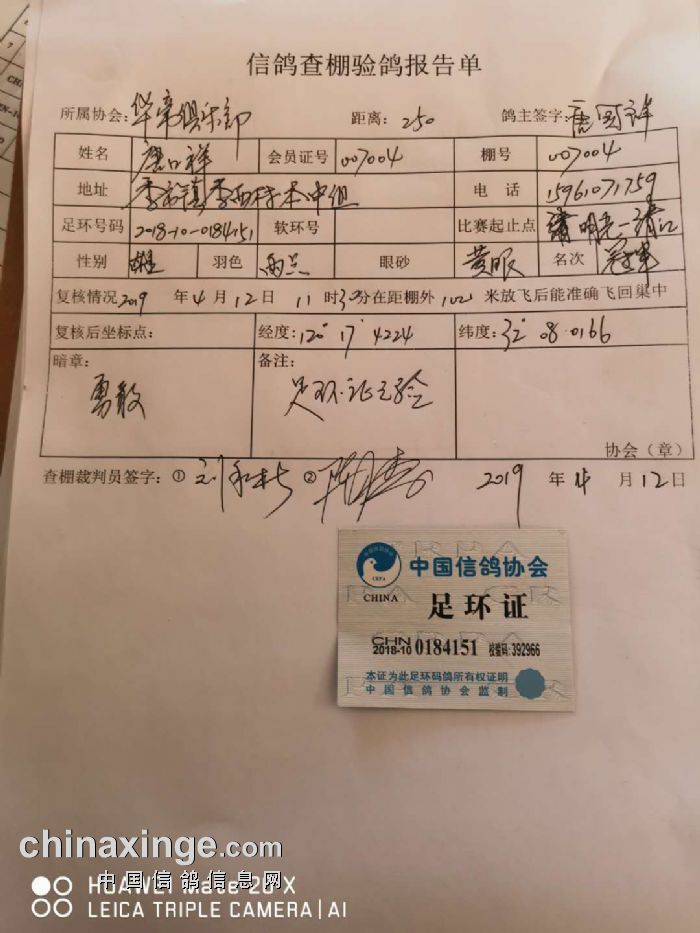 信鸽查棚验鸽报告单
所属协会: 华帝俱乐部 距离: 250 鸽主签字: 唐国祥
姓名 唐口祥 会员证号 007004 棚号 007004
地址 季市镇季西村 中组 电话 15961071759
足环号码 2018-10-0184151 软环号 比赛起止点 明光一靖江
性别 雄 羽色 雨点 眼砂 黄眼 名次 冠军
复核情况 2019 年 4 月 12 日 11 时 30 分在距棚外 100 米放飞后能准确飞回巢中
复核后坐标点: 经度: 120° 17' 4224 纬度: 32° 08.0166
暗章: 勇敢 备注: 足环.证已验
协会（章）
查棚裁判员签字: ① ② 2019 年 4 月 12 日
中国信鸽协会
CHINA
足环证
CHN
2018-10 0184151 校验码:392966
本证为此足环码鸽所有权证明
中国信鸽协会监制
chinaxinge.com
中国信鸽信息网
HUAWEI Mate 20 X
LEICA TRIPLE CAMERA | AI